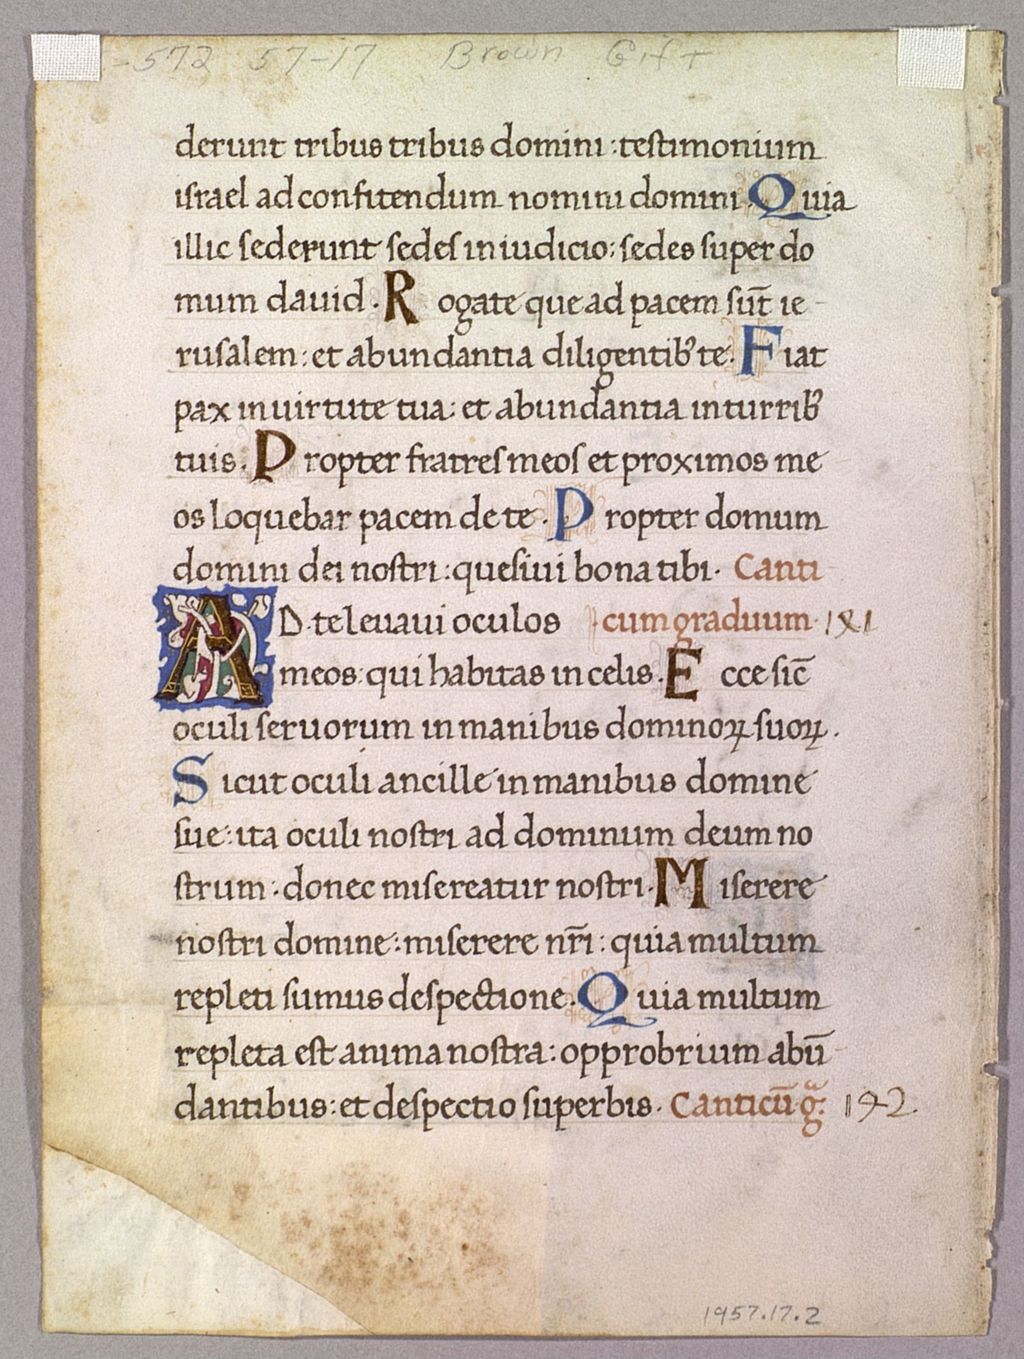 -572 57-17 Brown Gift
derunt tribus tribus domini : testimonium
israel ad confitendum nomini domini · Quia
illic sederunt sedes in iudicio : sedes super do
mum dauid · Rogate que ad pacem sūt ie
rusalem : et abundantia diligentibꝰ te · Fiat
pax in uirtute tua : et abundantia in turribꝰ
tuis · Propter fratres meos et proximos me
os loquebar pacem de te · Propter domum
domini dei nostri : quesiui bona tibi · Canti
AD te leuaui oculos cum graduum · 121
meos : qui habitas in celis · Ecce sic̄
oculi seruorum in manibus dominoꝝ suoꝝ .
Sicut oculi ancille in manibus domine
sue : ita oculi nostri ad dominum deum no
strum · donec misereatur nostri · Miserere
nostri domine : miserere nr̄i : quia multum
repleti sumus despectione · Quia multum
repleta est anima nostra : opprobrium abū
dantibus : et despectio superbis · Canticū g̃: 192
1957.17.2